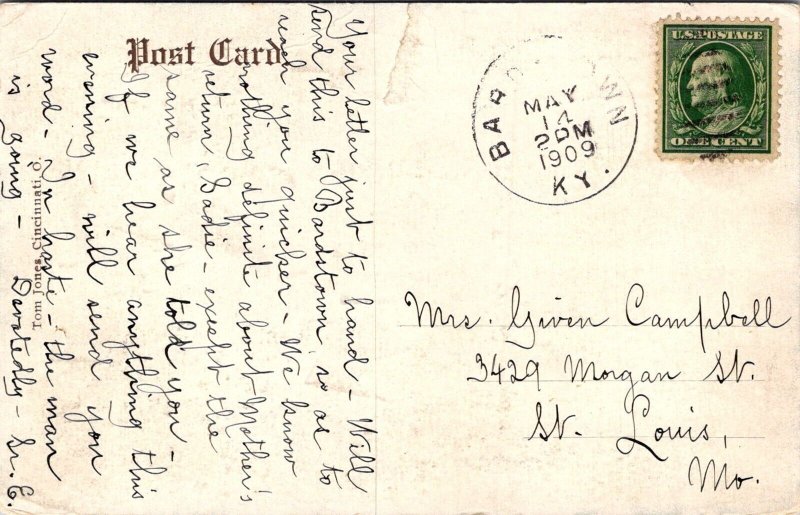 Post Card
U.S. POSTAGE
ONE CENT
BARDSTOWN
MAY
14
2PM
1909
KY.
Your letter just to hand - Will
send this to Bardstown, so as to
reach you quicker - We know
nothing definite about Mother's
return, Sadie - except the
same as she told you -
If we hear anything this
evening - will send you
word. In haste - the man
is going - Devotedly - Sr. E.
Tom Jones, Cincinnati, O.
Mrs. Given Campbell
3429 Morgan St.
St. Louis,
Mo.